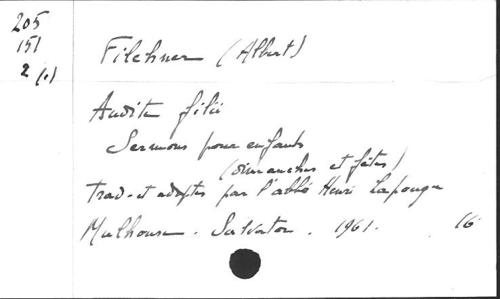 205
151
2 (1)
Filchner (Albert)
Audite filii
Sermons pour enfants
(dimanches et fêtes)
Trad. et adaptés par l'abbé Henri Lapouge
Mulhouse. Salvator. 1961. 16